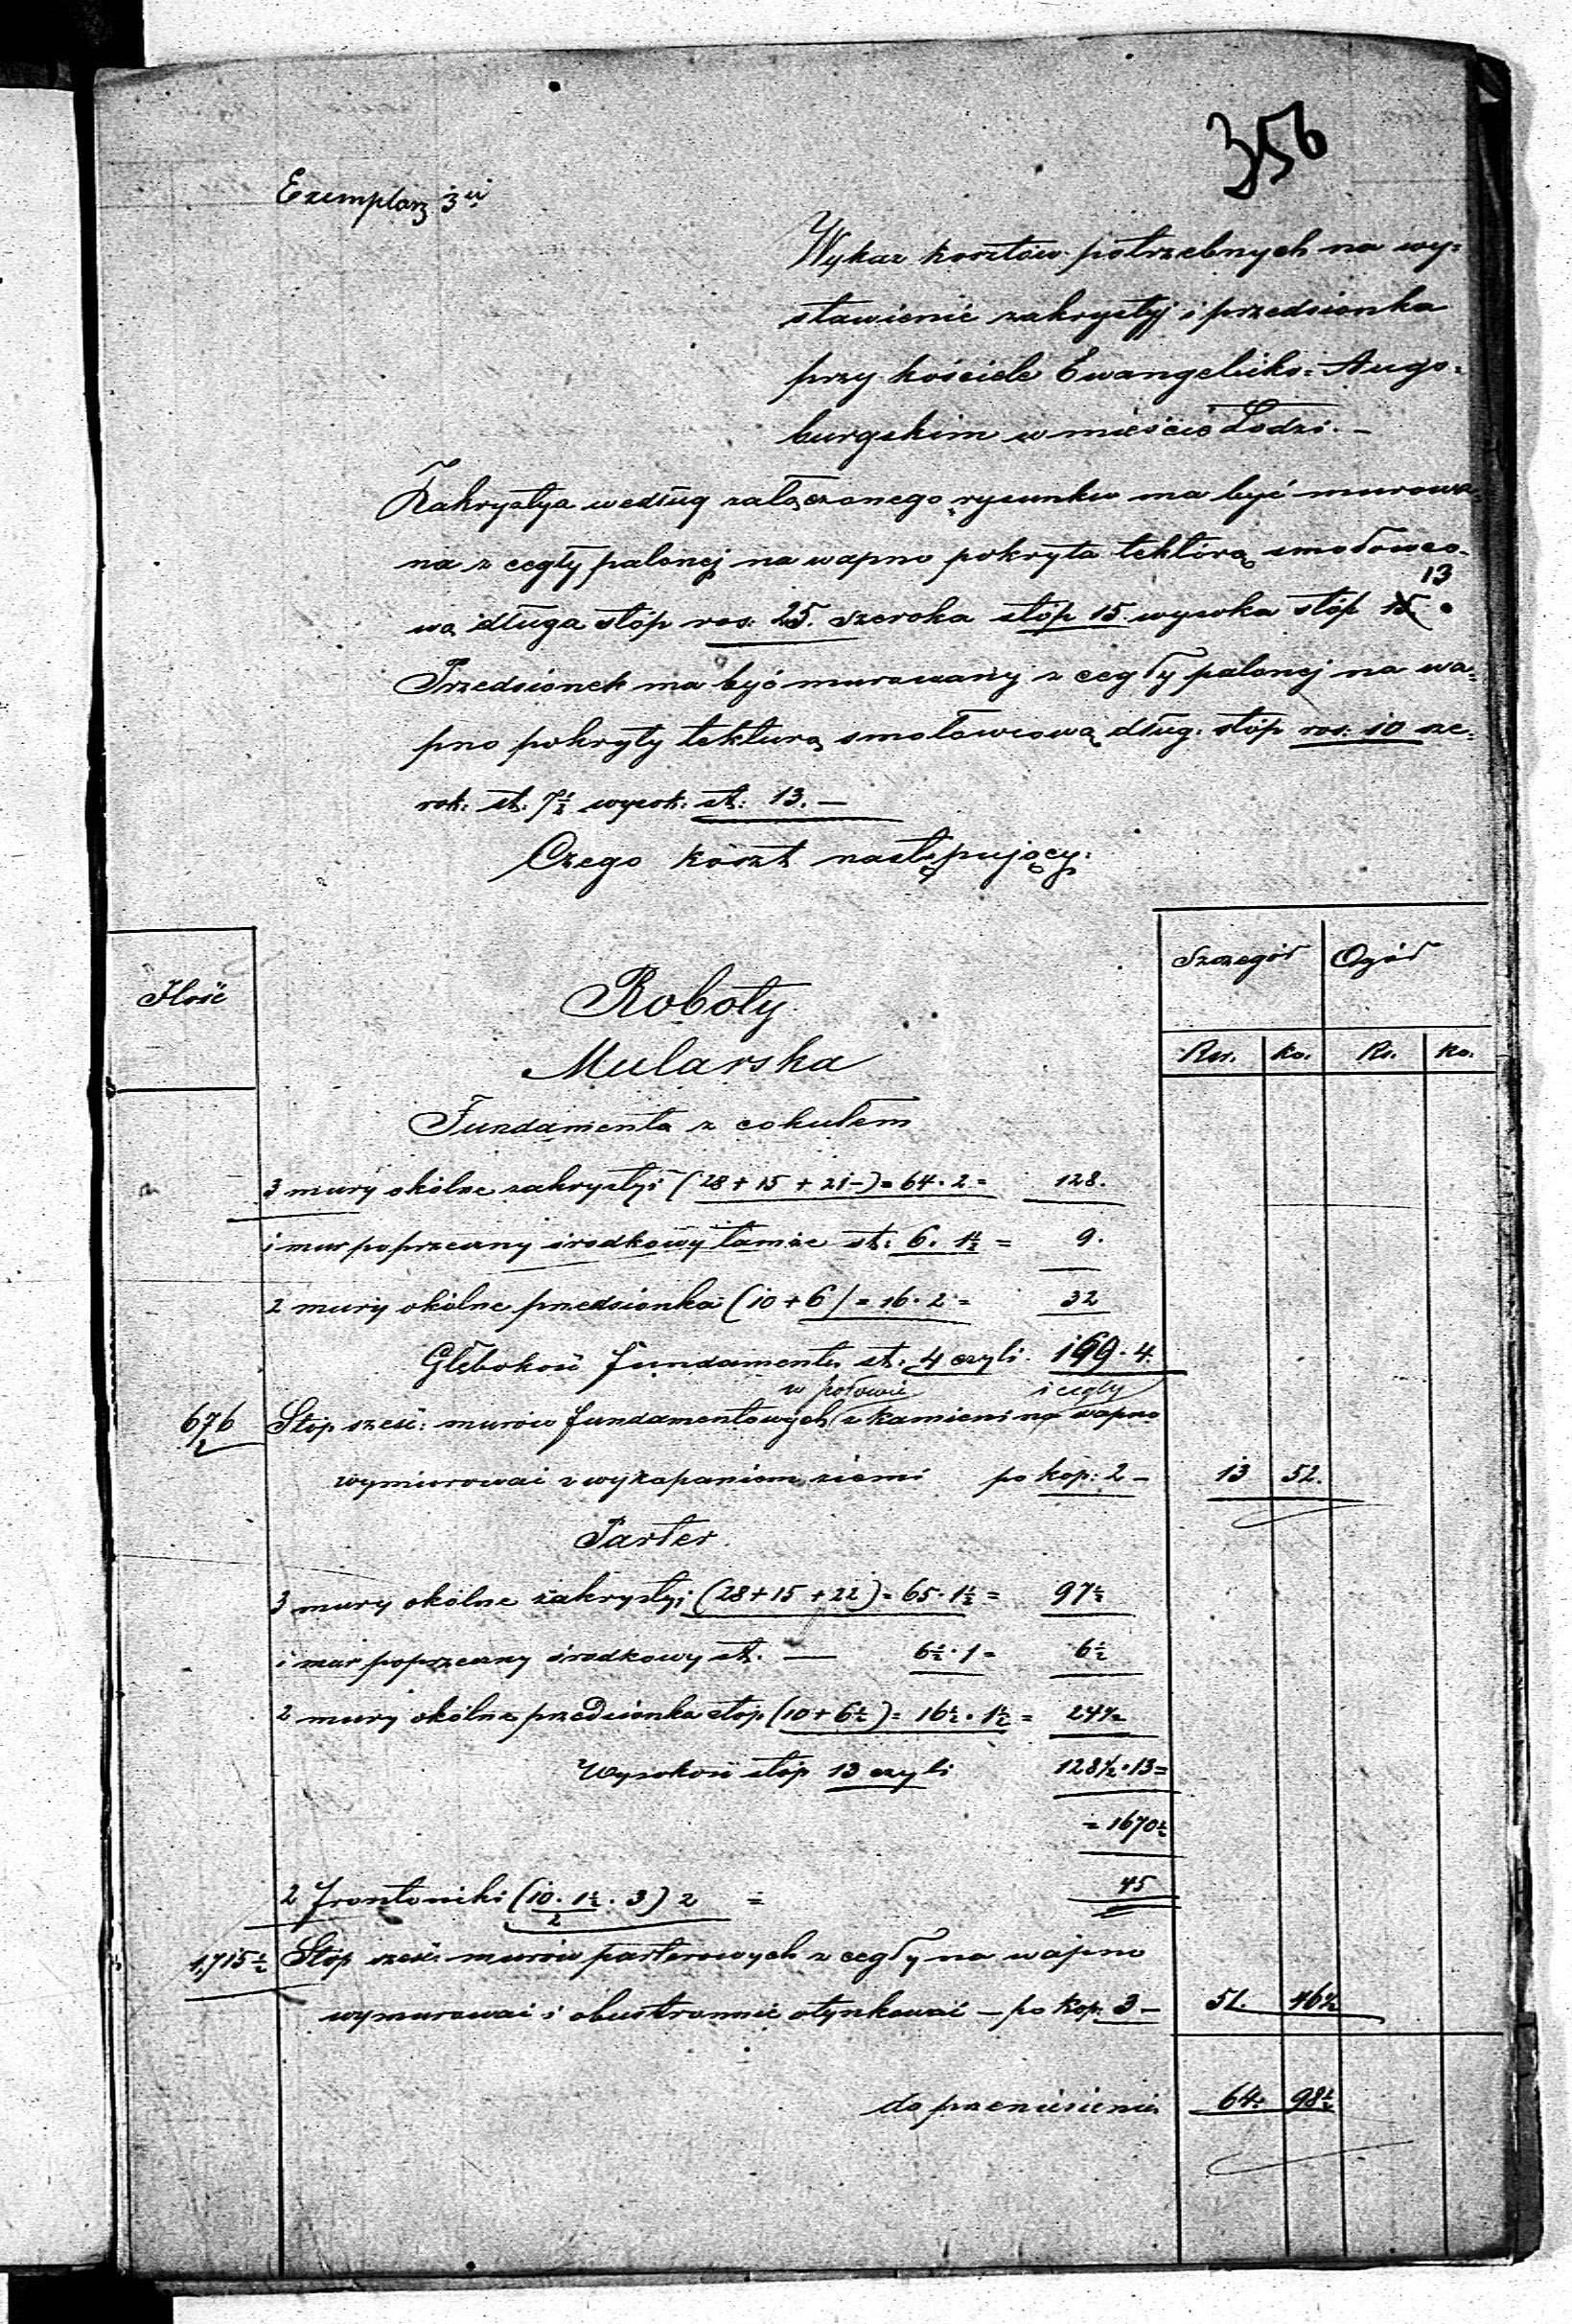 356
Exemplarz 3ci
Wykaz kosztów potrzebnych na wy=
stawienie zakrystyj i przedsionka
przy kościele Ewangelicko= Augs=
burgskim w mieście Łodzi. –
Zakrystya według załączonego rysunku ma być murowa=
na z cegły palonej na wapno pokryta tekturą smołowco=
13
wą długa stóp ros: 25. szeroka stóp 15 wysoka stóp 15.
Przedsionek ma być murowany z cegły palonej na wa=
pno pokryty tekturą smołowcową dług. stóp ros: 10 sze=
rok: st. 7½ wysok: st: 13. –
Czego koszt następujący:
Ilość
Szczegół Ogół
Roboty
Mularska
Rs. ko. Rs. ko.
Fundamenta z cokułem
3 mury okólne zakrystyi (28 + 15 + 21–) = 64 · 2 = 128.
1 mur poprzeczny środkowy tamże st: 6. 1½ = 9.
2 mury okólne przedsionka (10 + 6) = 16 · 2 = 32
Głębokość fundamentu st: 4 czyli 169 · 4.
w połowie i cegły
676 Stóp sześć: murów fundamentowych z kamieni na wapno
wymurować z wykopaniem ziemi po kop: 2 – 13 52.
Parter.
3 mury okólne zakrystyi (28 + 15 + 22) = 65 · 1½ = 97½
1 mur poprzeczny środkowy st. — 6½ · 1 = 6½
2 mury okólne przedsionka stóp (10 + 6½) = 16½ · 1½ = 24½
Wysokość stóp 13 czyli 128½ · 13 =
= 1670½
2 frontoniki (10 · 1½ · 3) 2 = 45
2
1,715½ Stóp sześć: murów parterowych z cegły na wapno
wymurować i obustronnie otynkować – po kop. 3 – 51. 46½
do przeniesienia 64. 98½